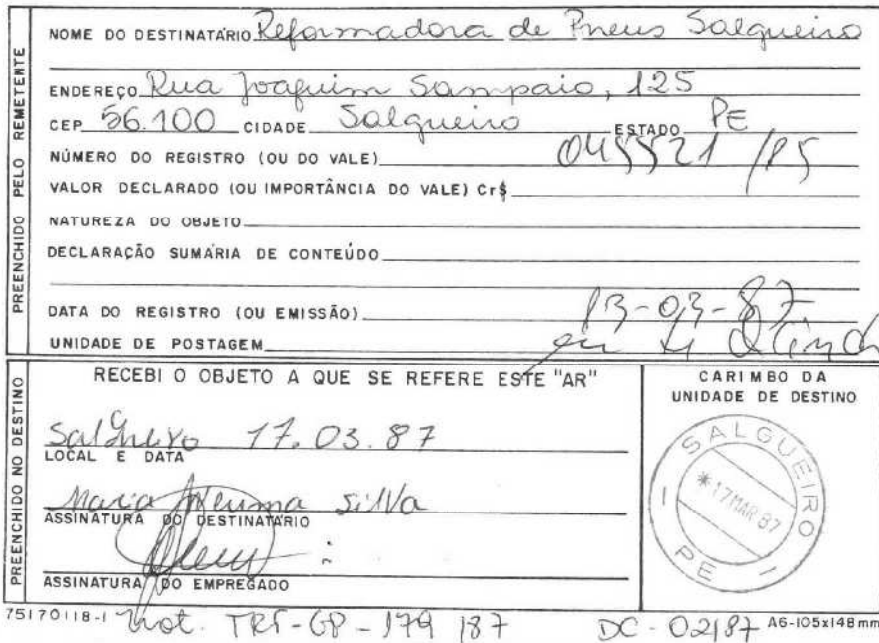 PREENCHIDO PELO REMETENTE
NOME DO DESTINATÁRIO Reformadora de Pneus Salgueiro
ENDEREÇO Rua Joaquim Sampaio, 125
CEP 56.100 CIDADE Salgueiro ESTADO PE
NÚMERO DO REGISTRO (OU DO VALE) 045521 /85
VALOR DECLARADO (OU IMPORTÂNCIA DO VALE) Cr$
NATUREZA DO OBJETO
DECLARAÇÃO SUMÁRIA DE CONTEÚDO
DATA DO REGISTRO (OU EMISSÃO) 13-03-87
UNIDADE DE POSTAGEM
PREENCHIDO NO DESTINO
RECEBI O OBJETO A QUE SE REFERE ESTE "AR"
Salgueiro 17.03.87
LOCAL E DATA
Maria Neuma Silva
ASSINATURA DO DESTINATÁRIO
ASSINATURA DO EMPREGADO
CARIMBO DA
UNIDADE DE DESTINO
SALGUEIRO
*17MAR 87
PE
75170118-1 Not. TRT-GP-179/87 DC-02/87 A6-105x148mm